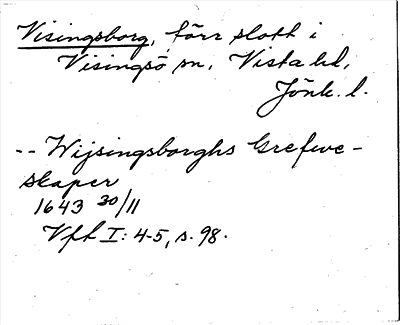 Visingsborg, förr slott i
Visingsö sn, Vista hd,
Jönk. l.
-- Wijsingsborghs Grefwe-
skaper
1643 30/11
Vfl I: 4-5, s. 98.